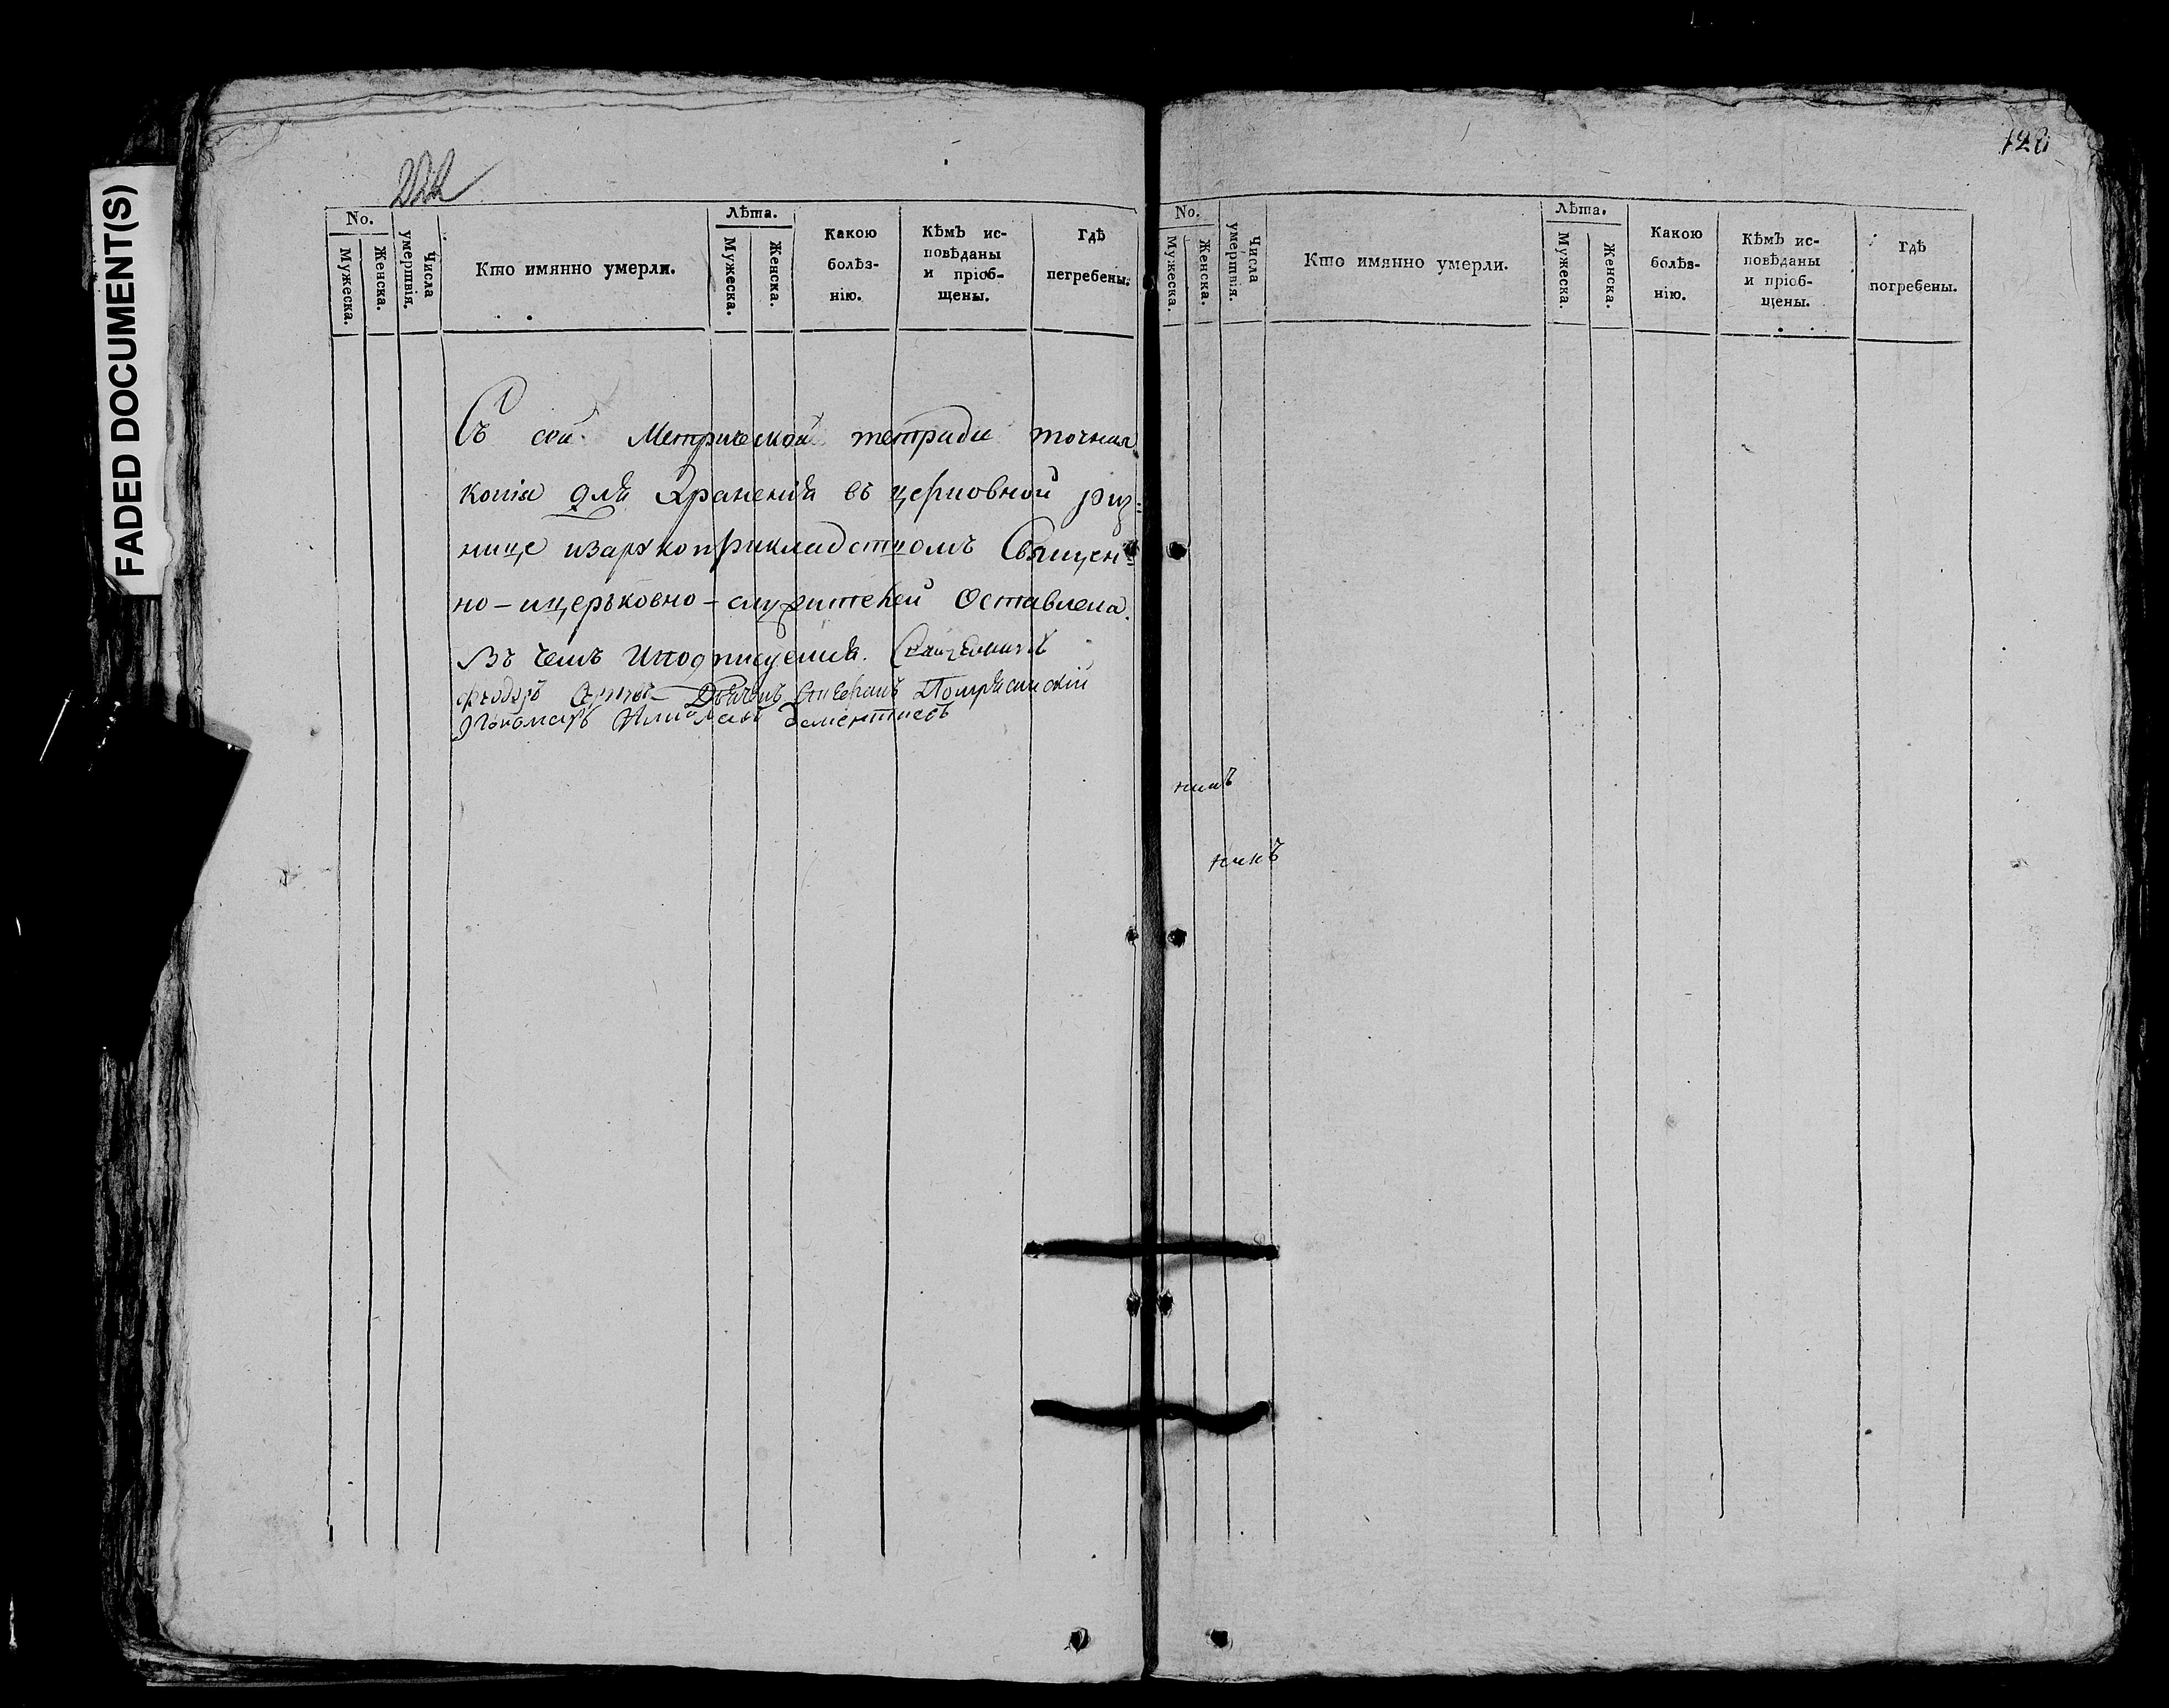 FADED DOCUMENT(S)
No.
Мужеска.
Женска.
Числа
умершвія.
Кто имянно умерли.
Лѣта.
Мужеска.
Женска.
Какою
болѣз-
нію.
Кѣмъ ис-
повѣданы
и пріоб-
щены.
Гдѣ
погребены.
Съ сей Метрической тетради точная
копія для Храненія въ церковной риз=
нице изарукоприкладствомъ Священ=
но-ицерьковно-служителей Оставлена.
Въ чемъ Иподписуемся. Священникъ
Феодоръ Дьячекъ
Пономарь Николай Дементиевъ
128
No.
Мужеска.
Женска.
Числа
умершвія.
Кто имянно умерли.
Лѣта.
Мужеска.
Женска.
Какою
болѣз-
нію.
Кѣмъ ис-
повѣданы
и пріоб-
щены.
Гдѣ
погребены.
никъ
никъ